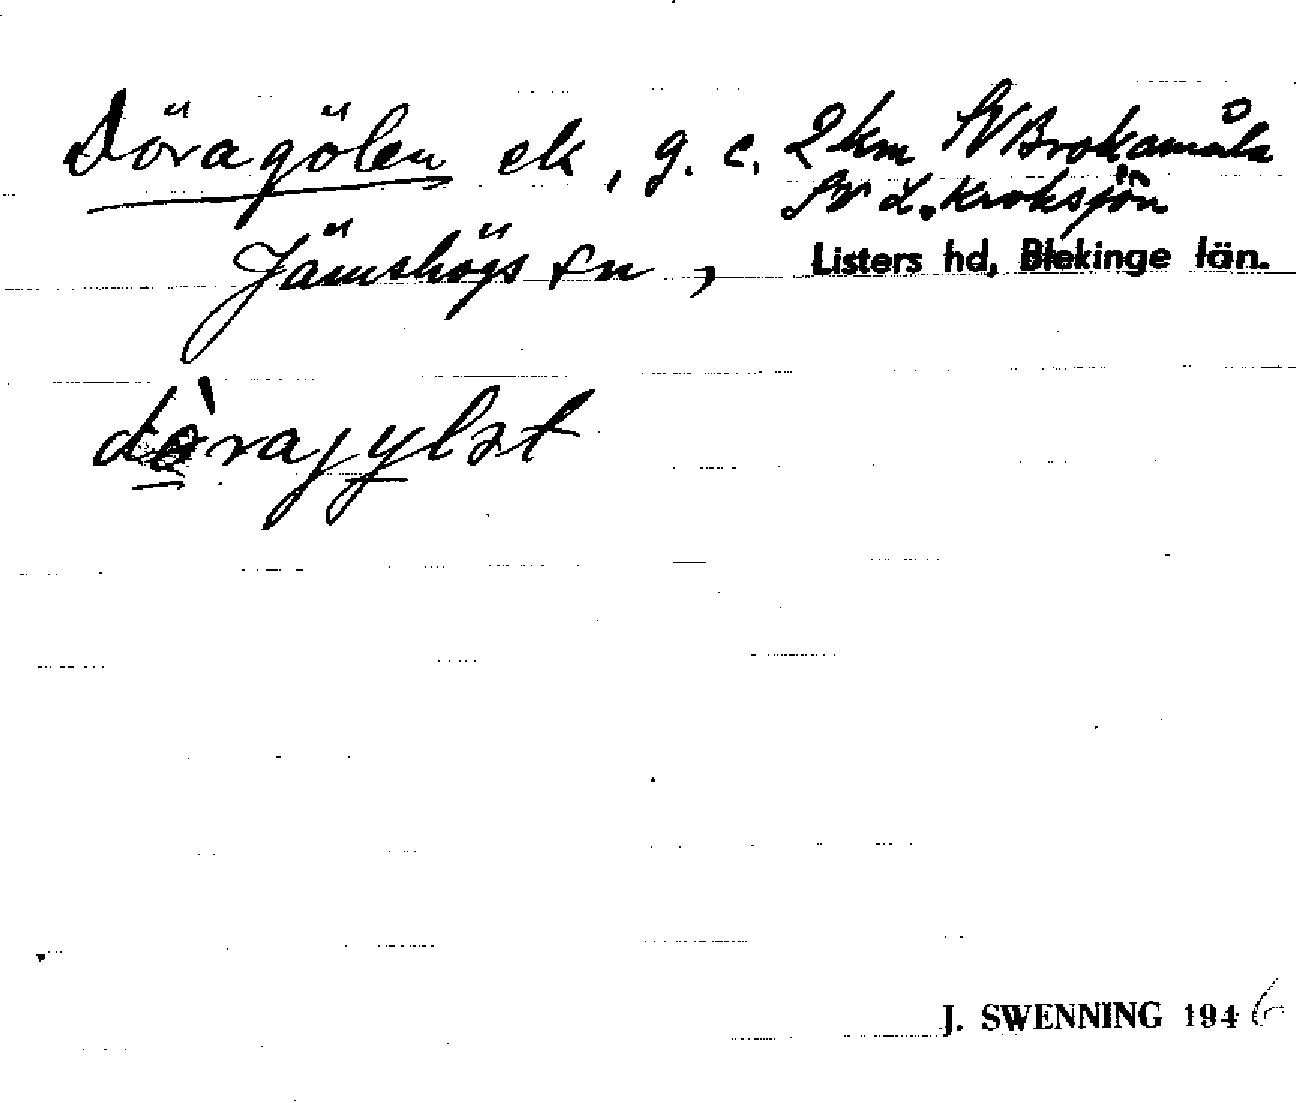 Döragölen ek, g. c. 2 km SV Brokamåla
SV L. Kroksjön
Jämshögs sn, Listers hd, Blekinge län.
döragylət
J. SWENNING 1946